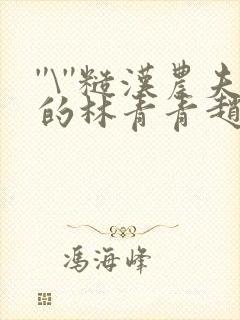 "\"糙漢農夫
的林青青趙
馮海峰